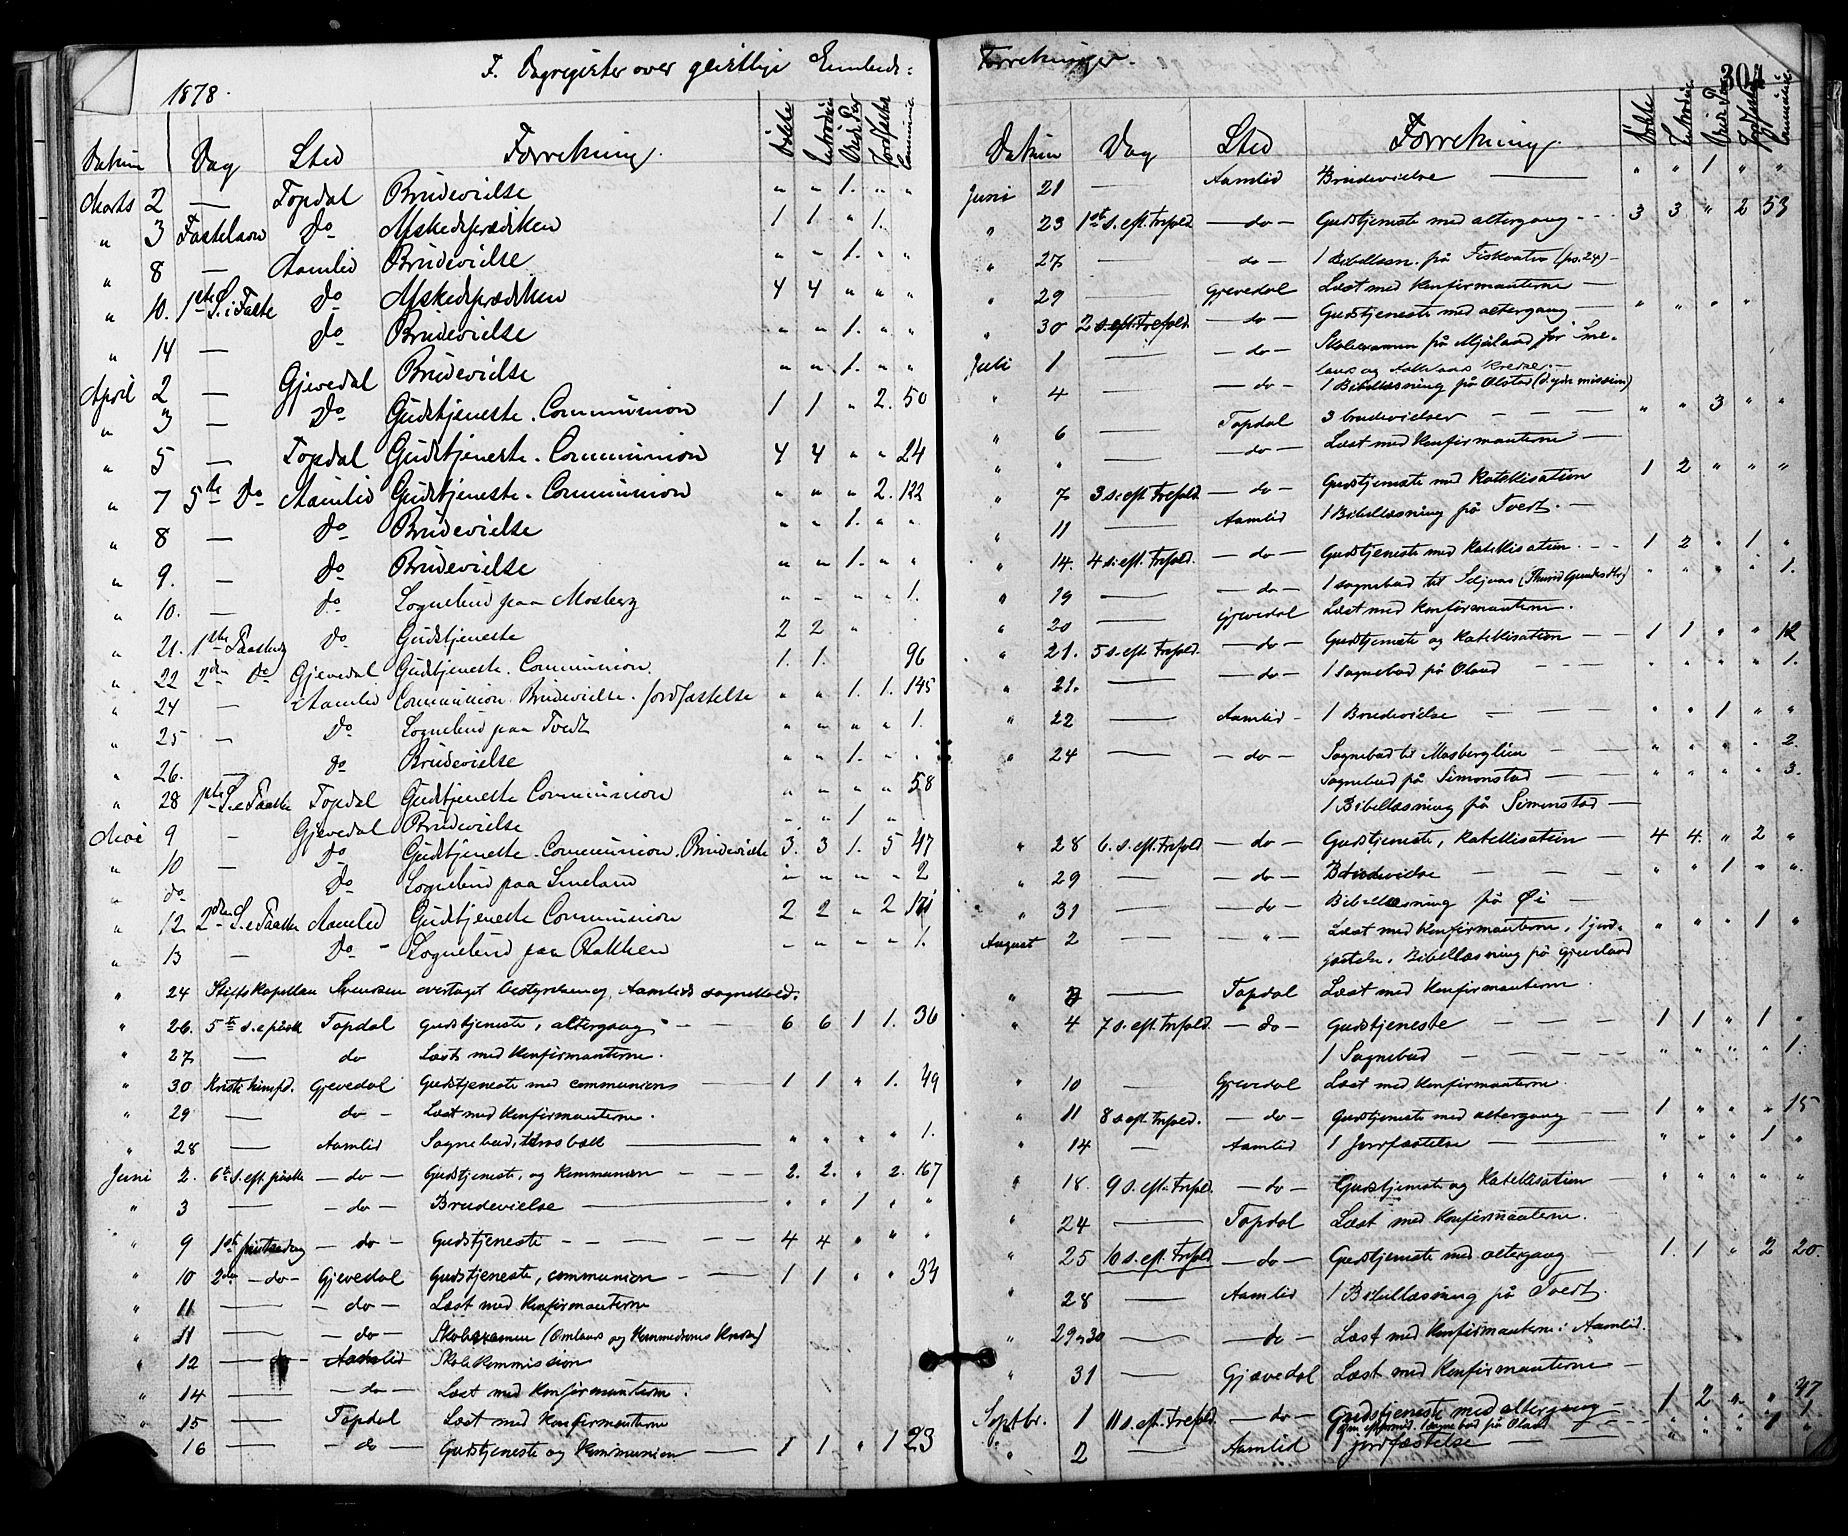 F. Dagregister over geistlige Embeds-
1878.
Datum Dag Sted Forretning. Døbte Introduc. Brude Par Jordfæstet Communic.
Marts 2 — Topdal Brudevielse " " 1. " "
" 3 Fastelavn Do Afskedsprædiken 1 1 " 1.
" 8 — Aamlid Brudevielse " " 1. " "
" 10. 1ste S. i Faste Do Afskedsprædiken 4 4 " " "
" 14 — Do Brudevielse " " 1. " "
April 2 — Gjevedal Brudevielse " " 1. " "
" 3 — Do Gudstjeneste. Communion 1 1 " 2. 50
" 5 — Topdal Gudstjeneste. Communion 4 4 " " 24
" 7 5te Do Aamlid Gudstjeneste. Communion " " " 2. 122
" 8 — Do Brudevielse " " 1. " "
" 9. — Do Brudevielse " " 1. " "
" 10. — Do Sognebud paa Mosberg " " " " 1.
" 21. 1ste Paaskedg Do Gudstjeneste 2 2 "
" 22 2den Do Gjevedal Gudstjeneste. Communion. 1. 1. 96
" 24 — Aamlid Communion. Brudevielse. Jordfæstelse " " 1. 1. 145
" 25 — Do Sognebud paa Tvedt " " " " 1.
" 26. — Do Brudevielse " " 1. " "
" 28 1ste S. e Paaske Topdal Gudstjeneste Communion " " " " 58
Mai 9 — Gjevedal Brudevielse " " 1 "
" 10 — Do Gudstjeneste. Communion. Brudevielse 3. 3 1. 5 47
" do Do Sognebud paa Smeland " " " " 2
" 12 2den S. e Paaske Aamlid Gudstjeneste Communion 2 2 " 2 171
" 13 — Do Sognebud paa Bakken " " " " 1.
" 24 Stiftskapellan Svensen overtaget bestyrelsen af Aamlids sognekald.
" 26. 5te s. e påske Topdal Gudstjeneste, altergang — — 6 6 1 1. 36
" 27 — do Læst med konfirmanterne.
" 30 Kristi himfd. Gjevedal Gudstjeneste med communion — 1 1 " 1. 49
" 29 — do — Læst med konfirmanterne.
" 28 — Aamlid Sognebud, — " " " " 1.
Juni 2. 6te S. eft. påske — do — Gudstjeneste, og kommunion — — 2. 2. " 2. 167
" 3 — — do — Brudevielse — " " 1 " "
" 9 1ste pintsedag — do — Gudstjeneste — — — 4 4 " " "
" 10 2den — do — Gjevedal Gudstjeneste, communion — — 1 1 " " 33
" 11 — — do — Læst med konfirmanterne
" 11 — — do — Skolexamen (Omlands og Kredse)
" 12 — Aamlid Skolekommission
" 14 — — do — Læst med konfirmanterne.
" 15 — Topdal Læst med konfirmanterne
16 — — do — Gudstjeneste og kommunion — 1 1. " 1 23
Forretninger.
304
Datum Dag Sted Forretning. Døbte Introduc. Brude Par Jordfæstet Communic.
Juni 21 — Aamlid Brudevielse — " " 1 " "
" 23 1ste s. eft. trefold. — do — Gudstjeneste med altergang — 3 3 " 2 53
" 27 — do — 1 Bibellæsn. på Fiskvatn (ps. 24) —
" 29 Gjevedal Læst med konfirmanterne —
" 30 2 s. eft. trefold. — do — Gudstjeneste med altergang — " " " "
Juli 1 — — do — Skolexamen på Mjåland for Sme-
lands og Askelands Kredse. —
" 4 — — do — 1 Bibellæsning på Olstad (d. ydre mission)
" 6 — Topdal 3 brudevielser — — " " 3 " "
" " — — do — Læst med konfirmanterne —
" 7 3 s. eft. trefold. — do — Gudstjeneste med katekisation 1 2 " " "
" 11 — Aamlid 1 Bibellæsning på Tvedt. —
" 14. 4 s. eft. trefold. — do — Gudstjeneste med katekisation. — 1 2 " 1 "
" 19 — — do — 1 sognebud til Seljaas (Thurid Gundersdtr) " " " " 1.
" 20 — Gjevedal Læst med konfirmanterne.
" 21. 5 s. eft. trefold. — do — Gudstjeneste og katekisation — 1 1 " " 12
" 21. — — do — 1 sognebud på Oland — — " " " " 1.
" 22 — Aamlid — 1 Brudevielse — — " " 1 " "
" 24 — — do — Sognebud til Mosberglien — " " " " 2.
Sognebud på Simonstad — " " " " 3.
1 Bibellæsning på Simonstad —
" 28 6. s. eft. trefold — do — Gudstjeneste, katekisation — 4 4. " 2 "
" 29 — — do — Brudevielse — — " " 1 " "
" 31 — — do — Bibellæsning på Øi —
August 2 — — " — Læst med konfirmanterne, 1 jord- " " " 1 "
fæstelse, Bibellæsning på Gjeveland
" 3 — Topdal Læst med konfirmanterne.
" 4 7 s. eft. trefold. — do — Gudstjeneste — — 1 1 " 1 "
1 Sognebud — — " " " " 1.
" 10 — Gjevedal Læst med konfirmanterne.
" 11 8 s. eft. trefold. — do — Gudstjeneste med altergang — 1 " " " 15
" 14 — Aamlid 1 Jordfæstelse — " " " 1 "
" 18 9 s. eft. trefol. — do — Gudstjeneste og katekisation — " " " " "
" 24 — Topdal Læst med konfirmanterne.
" 25 10 s. eft. trefold — do — Gudstjeneste med altergang 1. 1 " 2 20.
" 28 — Aamlid 1 Bibellæsning på Tvedt.
" 29 og 30 — — do — Læst med konfirmanterne i Aamlid.
" 31 — Gjævedal Læst med konfirmanterne —
Septbr. 1 11 s. eft. trefold. — do — Gudstjeneste med altergang — 1 2 " " 47
sognebud på Oland — " " " " 1
" 2 Aamlid 1 jordfæstelse — — " " " 1 "